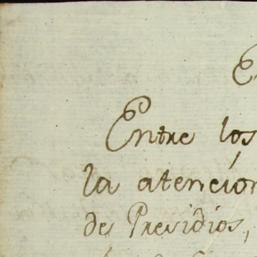 E
Entre los
la atencion
de Presidios,